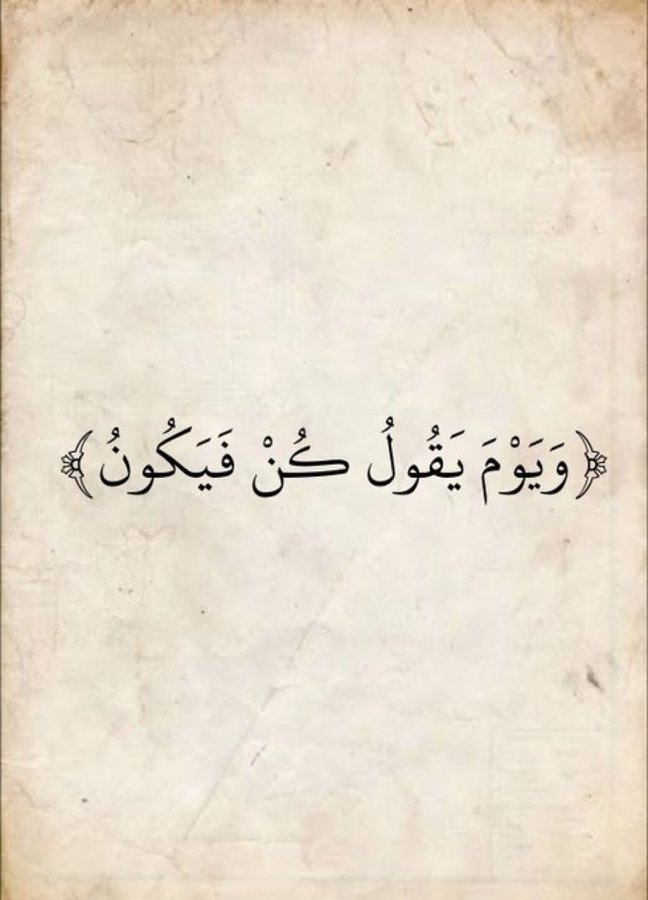 ﴿وَيَوْمَ يَقُولُ كُنْ فَيَكُونُ﴾